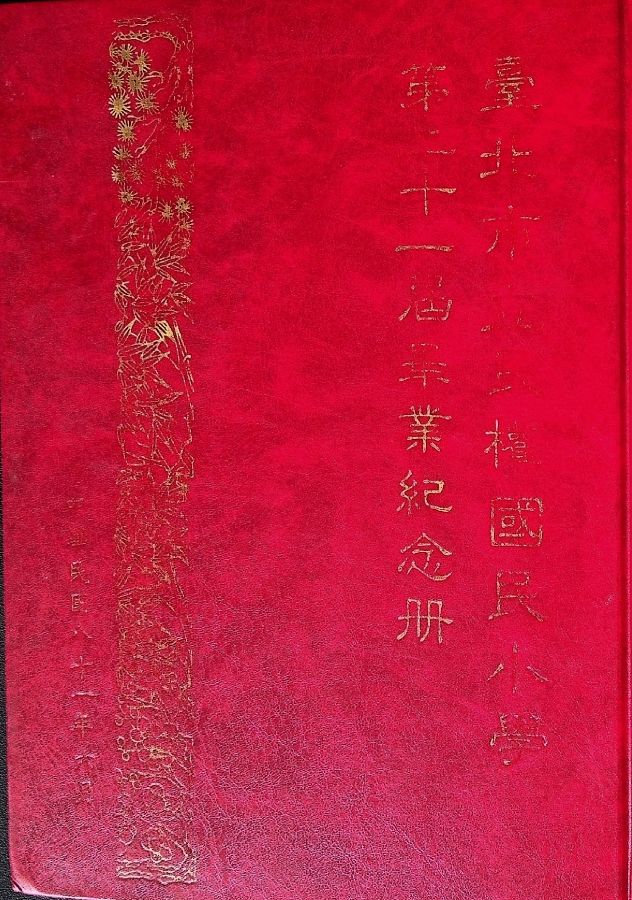 臺北市立民權國民小學
第二十一屆畢業紀念册
中華民國八十一年六月